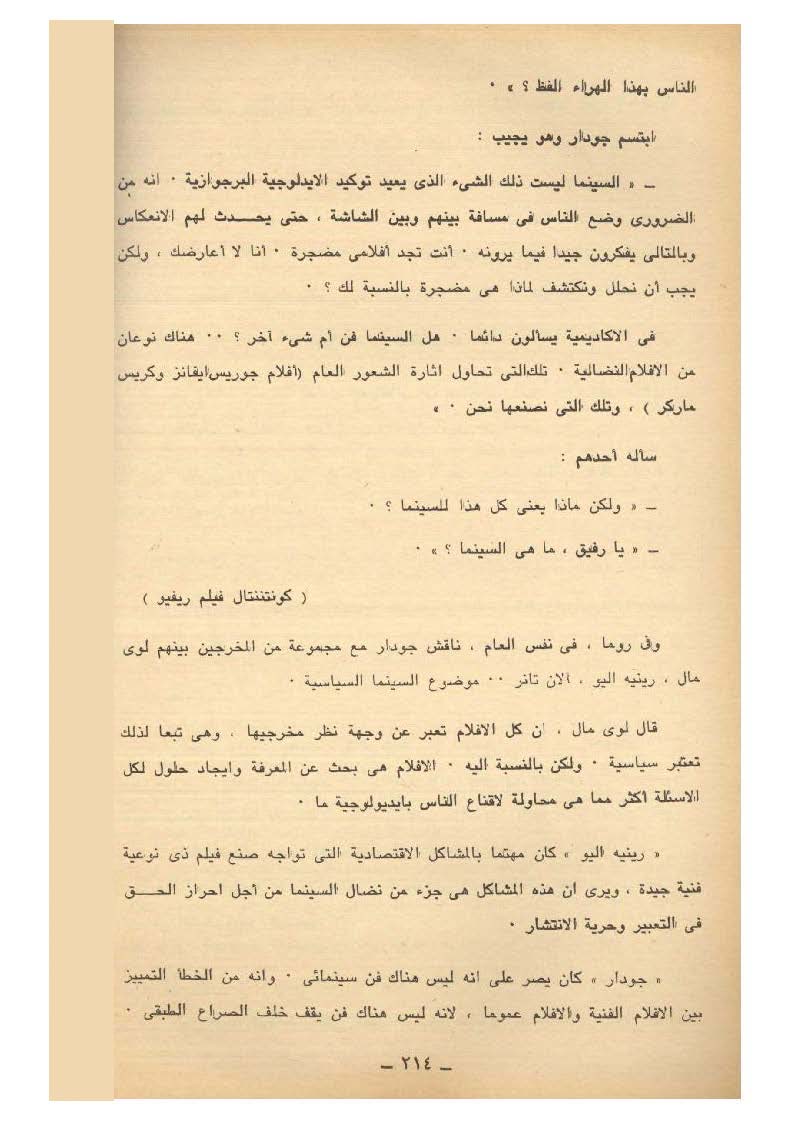 الناس بهذا الهراء الفظ ؟ » ·
ابتسم جودار وهو يجيب :
ــ « السينما ليست ذلك الشىء الذى يعيد توكيد الايدلوجية البرجوازية · انه من
الضرورى وضع الناس فى مسافة بينهم وبين الشاشة ، حتى يحـــدث لهم الانعكاس
وبالتالى يفكرون جيدا فيما يرونه · أنت تجد أفلامى مضجرة · أنا لا أعارضك ، ولكن
يجب أن نحلل ونكتشف لماذا هى مضجرة بالنسبة لك ؟ ·
فى الاكاديمية يسألون دائما · هل السينما فن أم شىء آخر ؟ ·· هناك نوعان
من الافلام النضالية · تلك التى تحاول اثارة الشعور العام (أفلام جوريس ايفانز وكريس
ماركر ) ، وتلك التى نصنعها نحن · »
سأله أحدهم :
ــ « ولكن ماذا يعنى كل هذا للسينما ؟ ·
ــ « يا رفيق ، ما هى السينما ؟ » ·
( كونتننتال فيلم ريفيو )
وفى روما ، فى نفس العام ، ناقش جودار مع مجموعة من المخرجين بينهم لوى
مال ، رينيه اليو ، آلان تانر ·· موضوع السينما السياسية ·
قال لوى مال ، ان كل الافلام تعبر عن وجهة نظر مخرجيها ، وهى تبعا لذلك
تعتبر سياسية · ولكن بالنسبة اليه · الافلام هى بحث عن المعرفة وايجاد حلول لكل
الاسئلة أكثر مما هى محاولة لاقناع الناس بايديولوجية ما ·
« رينيه اليو » كان مهتما بالمشاكل الاقتصادية التى تواجه صنع فيلم ذى نوعية
فنية جيدة ، ويرى ان هذه المشاكل هى جزء من نضال السينما من أجل احراز الحـــق
فى التعبير وحرية الانتشار ·
« جودار » كان يصر على انه ليس هناك فن سينمائى · وانه من الخطأ التمييز
بين الافلام الفنية والافلام عموما ، لانه ليس هناك فن يقف خلف الصراع الطبقى ·
ــ ٢١٤ ــ